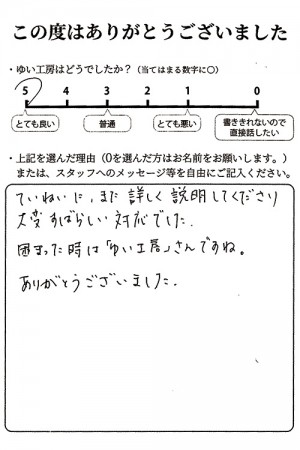 この度はありがとうございました
・ゆい工房はどうでしたか？（当てはまる数字に〇）
5 4 3 2 1 0
とても良い 普通 とても悪い 書ききれないので直接話したい
・上記を選んだ理由（0を選んだ方はお名前をお願いします。）
または、スタッフへのメッセージ等を自由にご記入ください。
ていねいに、また詳しく説明してくださり
大変すばらしい対応でした.
困まった時は「ゆい工房」さんですね。
ありがとうございました.